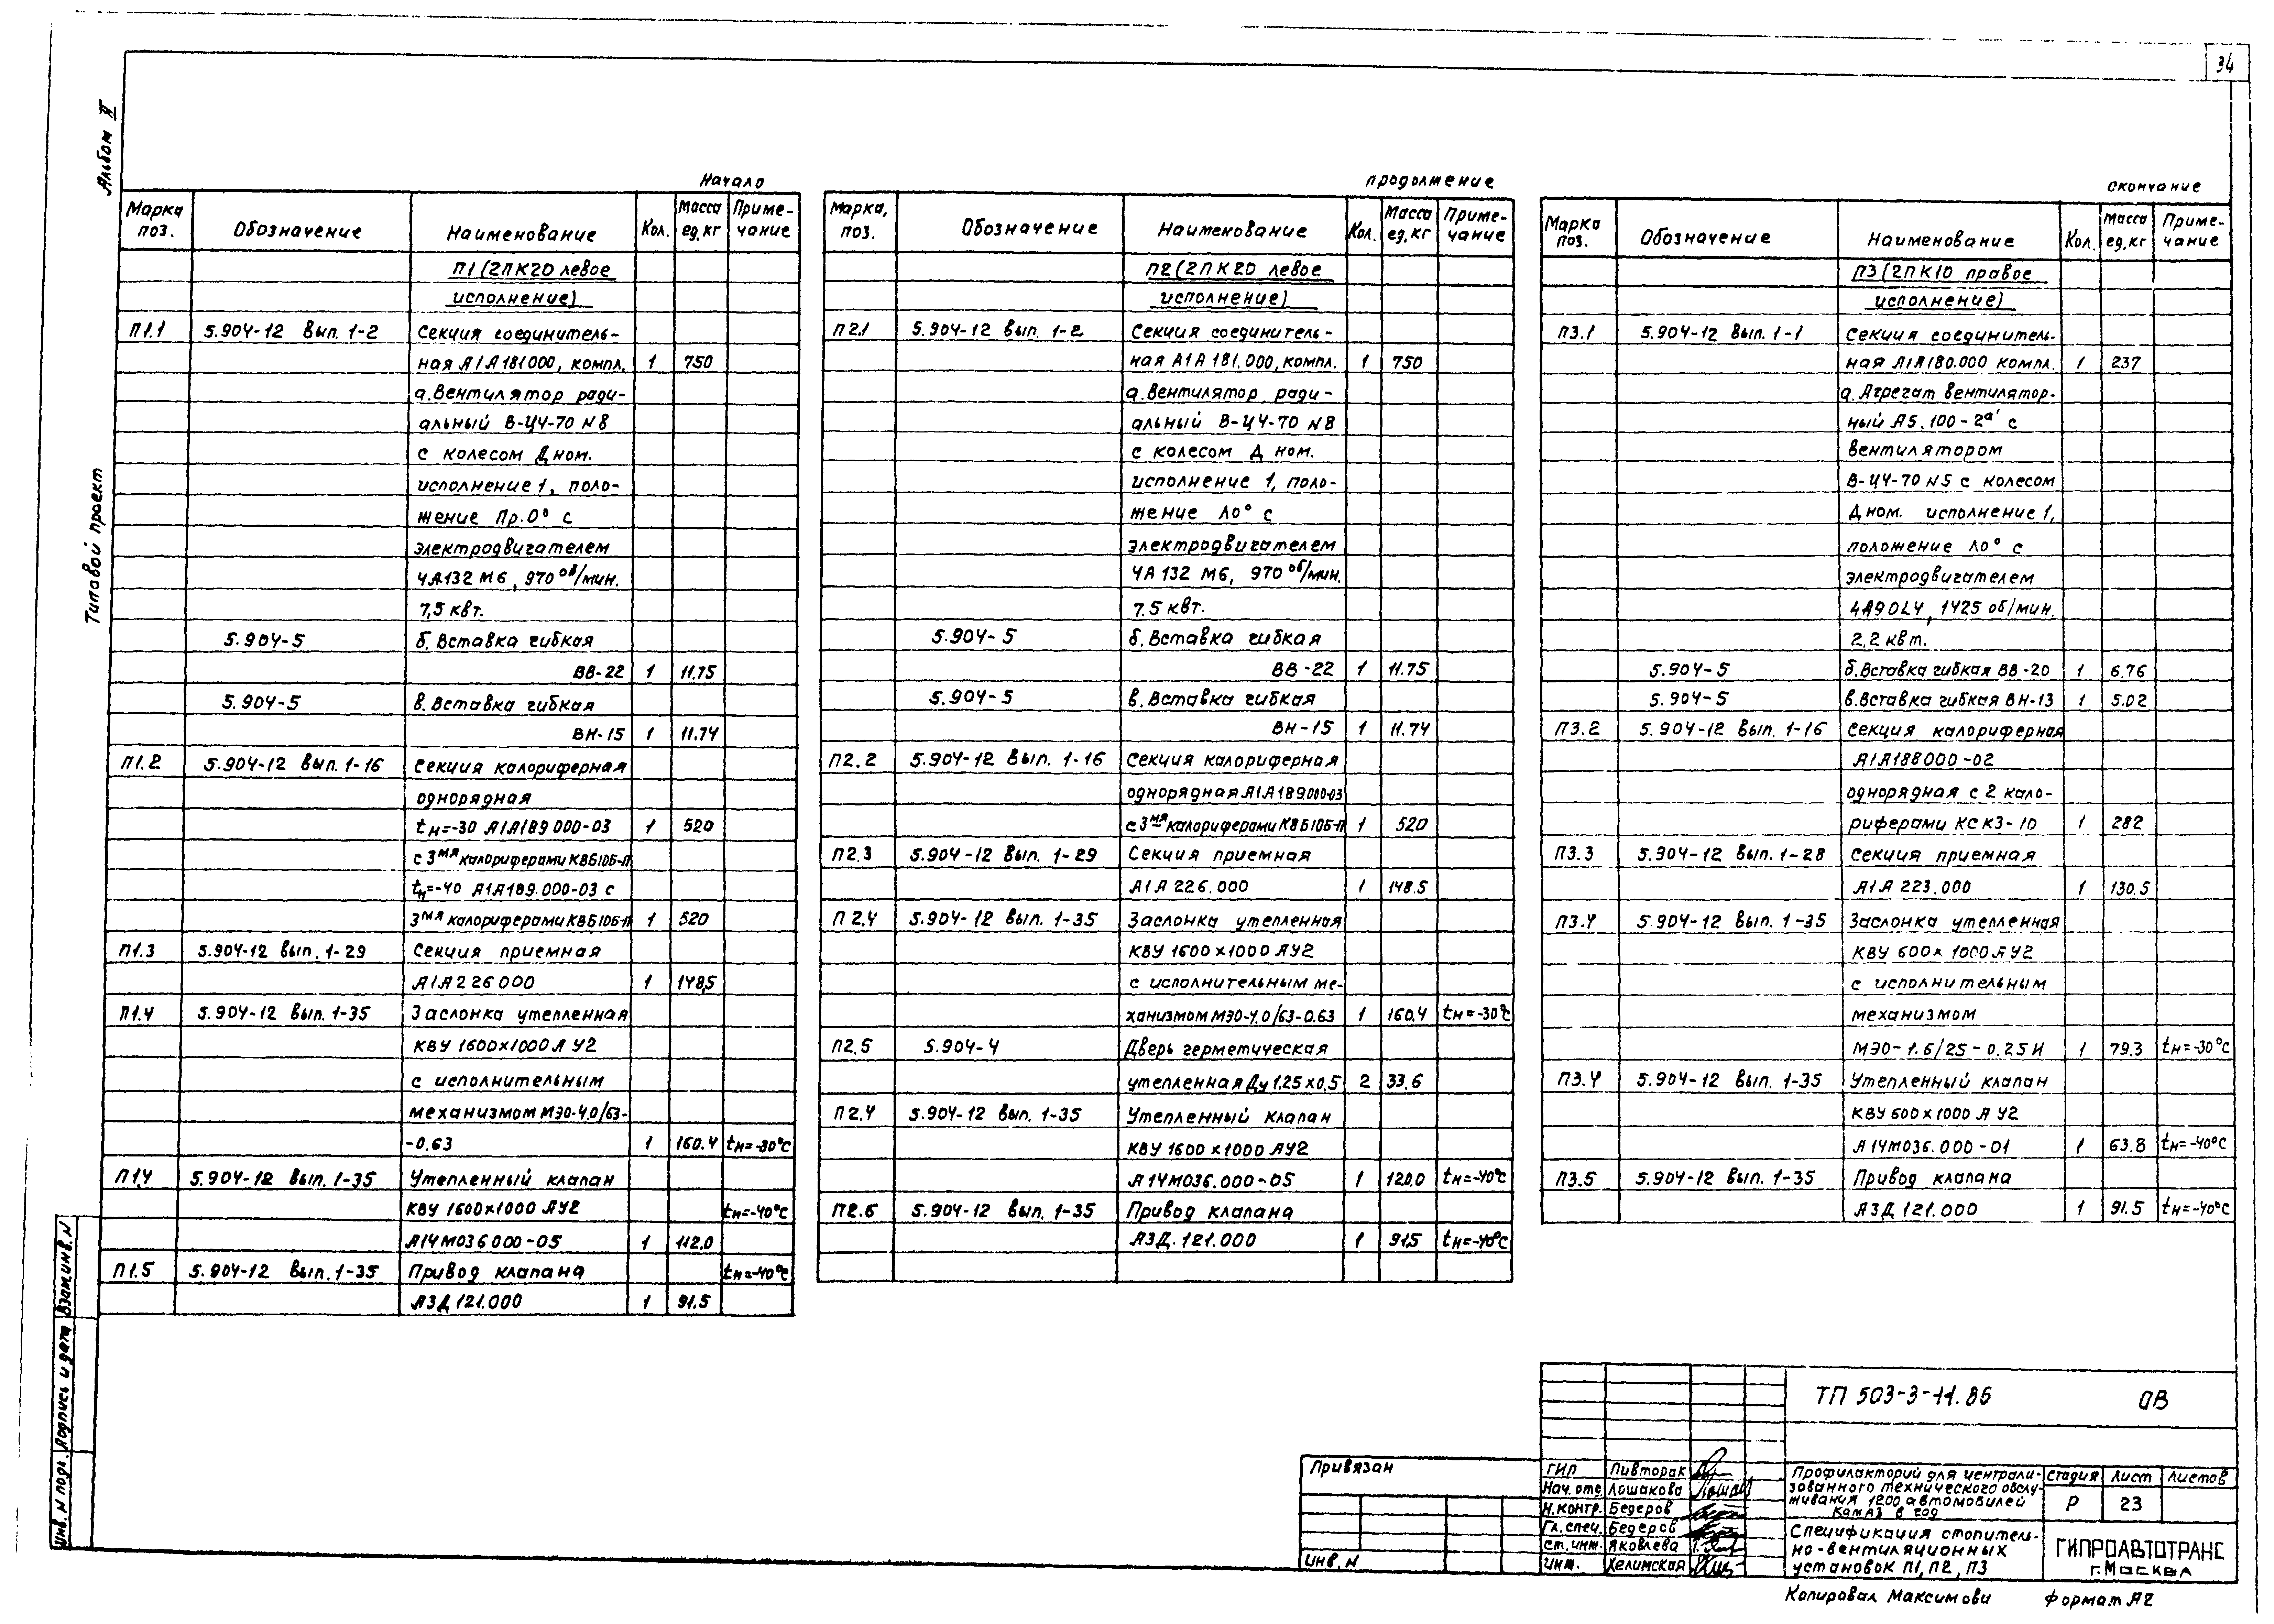 34
Альбом V
Типовой проект
Начало
Марка поз. Обозначение Наименование Кол. Масса ед, кг Приме-чание
П1 (2ПК20 левое
исполнение)
П1.1 5.904-12 вып. 1-2 Секция соединитель-
ная А1А181000, компл. 1 750
а. Вентилятор ради-
альный В-Ц4-70 N8
с колесом Д ном.
исполнение 1, поло-
жение Пр. 0° с
электродвигателем
4А132 М6, 970 об/мин.
7,5 квт.
5.904-5 б. Вставка гибкая
ВВ-22 1 11.75
5.904-5 в. Вставка гибкая
ВН-15 1 11.74
П1.2 5.904-12 вып. 1-16 Секция калориферная
однорядная
tн=-30 А1А189 000-03 1 520
с 3мя калориферами КВБ10Б-П
tн=-40 А1А189.000-03 с
3мя калориферами КВБ10Б-П 1 520
П1.3 5.904-12 вып. 1-29 Секция приемная
А1А226000 1 148,5
П1.4 5.904-12 вып. 1-35 Заслонка утепленная
КВУ 1600х1000 А У2
с исполнительным
механизмом МЭО-4.0/63-
-0.63 1 160.4 tн=-30°С
П1.4 5.904-12 вып. 1-35 Утепленный клапан
КВУ 1600х1000 АУ2 tн=-40°С
А14М036000-05 1 112.0
П1.5 5.904-12 вып. 1-35 Привод клапана tн=-40°С
А3Д 121.000 1 91.5
продолжение
Марка, поз. Обозначение Наименование Кол. Масса ед, кг Приме-чание
П2 (2ПК20 левое
исполнение)
П2.1 5.904-12 вып. 1-2 Секция соединитель-
ная А1А 181.000, компл. 1 750
а. Вентилятор ради-
альный В-Ц4-70 N8
с колесом Д ном.
исполнение 1, поло-
жение Л0° с
электродвигателем
4А 132 М6, 970 об/мин.
7.5 квт.
5.904-5 б. Вставка гибкая
ВВ-22 1 11.75
5.904-5 в. Вставка гибкая
ВН-15 1 11.74
П2.2 5.904-12 вып. 1-16 Секция калориферная
однорядная А1А189.000-03
с 3мя калориферами КВБ10Б-П 1 520
П2.3 5.904-12 вып. 1-29 Секция приемная
А1А 226.000 1 148.5
П2.4 5.904-12 вып. 1-35 Заслонка утепленная
КВУ 1600х1000 АУ2
с исполнительным ме-
ханизмом МЭО-4.0/63-0.63 1 160.4 tн=-30°С
П2.5 5.904-4 Дверь герметическая
утепленная Ду 1.25х0,5 2 33.6
П2.4 5.904-12 вып. 1-35 Утепленный клапан
КВУ 1600х1000 АУ2
А14М036.000-05 1 120.0 tн=-40°С
П2.6 5.904-12 вып. 1-35 Привод клапана
А3Д.121.000 1 91.5 tн=-40°С
окончание
Марка поз. Обозначение Наименование Кол. Масса ед, кг Приме-чание
П3 (2ПК10 правое
исполнение)
П3.1 5.904-12 вып. 1-1 Секция соединитель-
ная А1А180.000 компл. 1 237
а. Агрегат вентилятор-
ный А5.100-2а' с
вентилятором
В-Ц4-70 N5 с колесом
Д ном. исполнение 1,
положение Л0° с
электродвигателем
4А90L4, 1425 об/мин.
2.2 квт.
5.904-5 б. Вставка гибкая ВВ-20 1 6.76
5.904-5 в. Вставка гибкая ВН-13 1 5.02
П3.2 5.904-12 вып. 1-16 Секция калориферная
А1А188000-02
однорядная с 2 кало-
риферами КСК3-10 1 282
П3.3 5.904-12 вып. 1-28 Секция приемная
А1А 223.000 1 130.5
П3.4 5.904-12 вып. 1-35 Заслонка утепленная
КВУ 600х1000 АУ2
с исполнительным
механизмом
МЭО-1.6/25-0.25И 1 79.3 tн=-30°С
П3.4 5.904-12 вып. 1-35 Утепленный клапан
КВУ 600х1000 АУ2
А14М036.000-01 1 63.8 tн=-40°С
П3.5 5.904-12 вып. 1-35 Привод клапана
А3Д 121.000 1 91.5 tн=-40°С
Инв. N подл. Подпись и дата Взам.инв. N
Привязан
Инв. N
ТП 503-3-11.86 ОВ
ГИП Пивторак
Нач. отд. Лошакова
Н.контр. Бедеров
Гл. спец. Бедеров
Ст. инж. Яковлева
Инж. Хелимская
Профилакторий для централи-
зованного технического обслу-
живания 1200 автомобилей
КамАЗ в год
Стадия Лист Листов
Р 23
Спецификация отопитель-
но-вентиляционных
установок П1, П2, П3
ГИПРОАВТОТРАНС
г. Москва
Копировал Максимови Формат А2